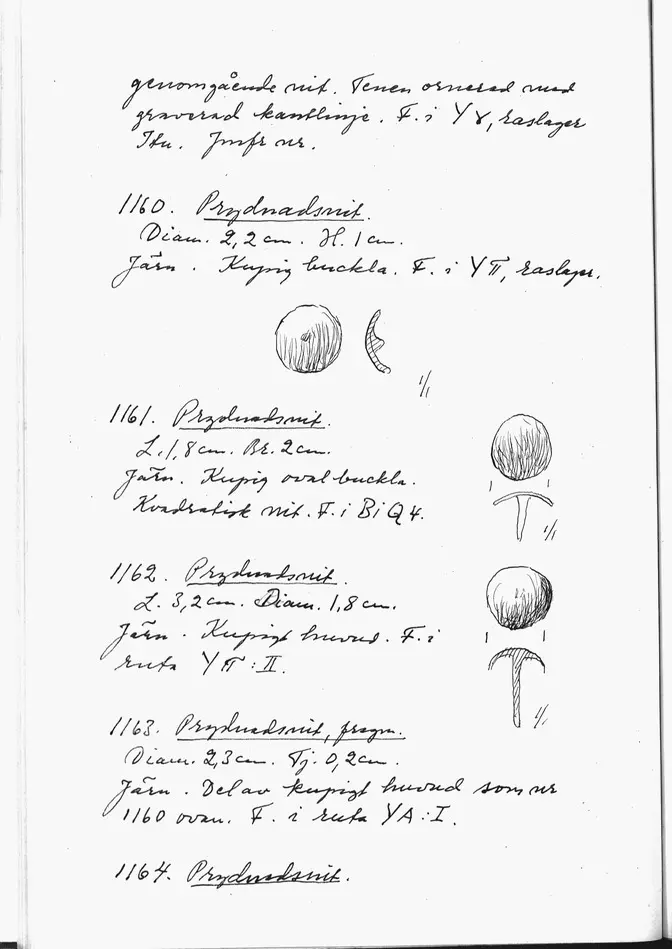 genomgående nit. Tenen ornerad med
graverad kantlinje. F. i Y γ, raslager
Itu. Jmfr nr.
1160. Prydnadsnit.
Diam. 2,2 cm. H. 1 cm.
Järn. Kupig buckla. F. i Y π, raslager.
1/1
1161. Prydnadsnit.
L. 1,8 cm. Br. 2 cm.
Järn. Kupig oval buckla.
Kvadratisk nit. F. i BiQ4.
1/1
1162. Prydnadsnit.
L. 3,2 cm. Diam. 1,8 cm.
Järn. Kupigt huvud. F. i
ruta Y π : II.
1/1
1163. Prydnadsnit, fragm.
Diam. 2,3 cm. Tj. 0,2 cm.
Järn. Del av kupigt huvud som nr
1160 ovan. F. i ruta YA : I.
1164. Prydnadsnit.